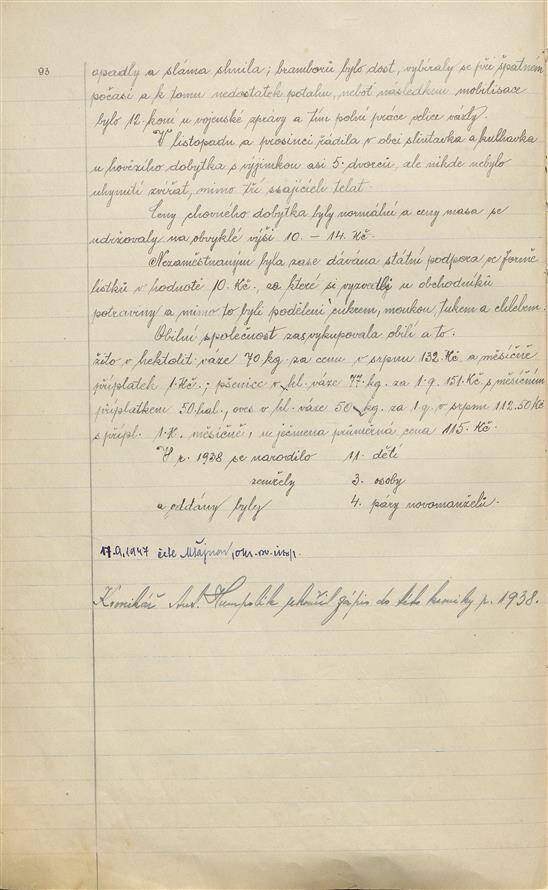 93
opadly a sláma shnila; bramborů bylo dost, vybíraly se při špatném
počasí a k tomu nedostatek potahu, neboť následkem mobilisace
bylo 12. koní u vojenské správy a tím polní práce velice vázly.
V listopadu a prosinci řádila v obci slintavka a kulhavka
u hovězího dobytka s vyjímkou asi 5. dvorců, ale nikde nebylo
uhynutí zvířat, mimo tří ssajících telat.
Ceny chovného dobytka byly normální a ceny masa se
udržovaly na obvyklé výši 10. – 14. Kč.
Nezaměstnaným byla zase dávána státní podpora ve formě
lístků v hodnotě 10. Kč. za které si vyzvedli u obchodníků
potraviny a mimo to byli poděleni cukrem, moukou, tukem a chlebem.
Obilní společnost zas vykupovala obilí a to:
žito v hektolit. váze 70 kg. za cenu v srpnu 132. Kč a měsíčně
příplatek 1. Kč.; pšenice v hl. váze 77. kg. za 1. q. 151. Kč s měsíčním
příplatkem 50. hal., oves v hl. váze 50 kg. za 1. q. v srpnu 112.50 Kč
s přípl. 1. K. měsíčně, u ječmena průměrná cena 115. Kč.
V r. 1938 se narodilo 11. dětí
zemřely 3. osoby
a oddány byly 4. páry novomanželů.
1947 okr.
Kronikář Ant. Humpolík skončil zápis do této kroniky r. 1938.